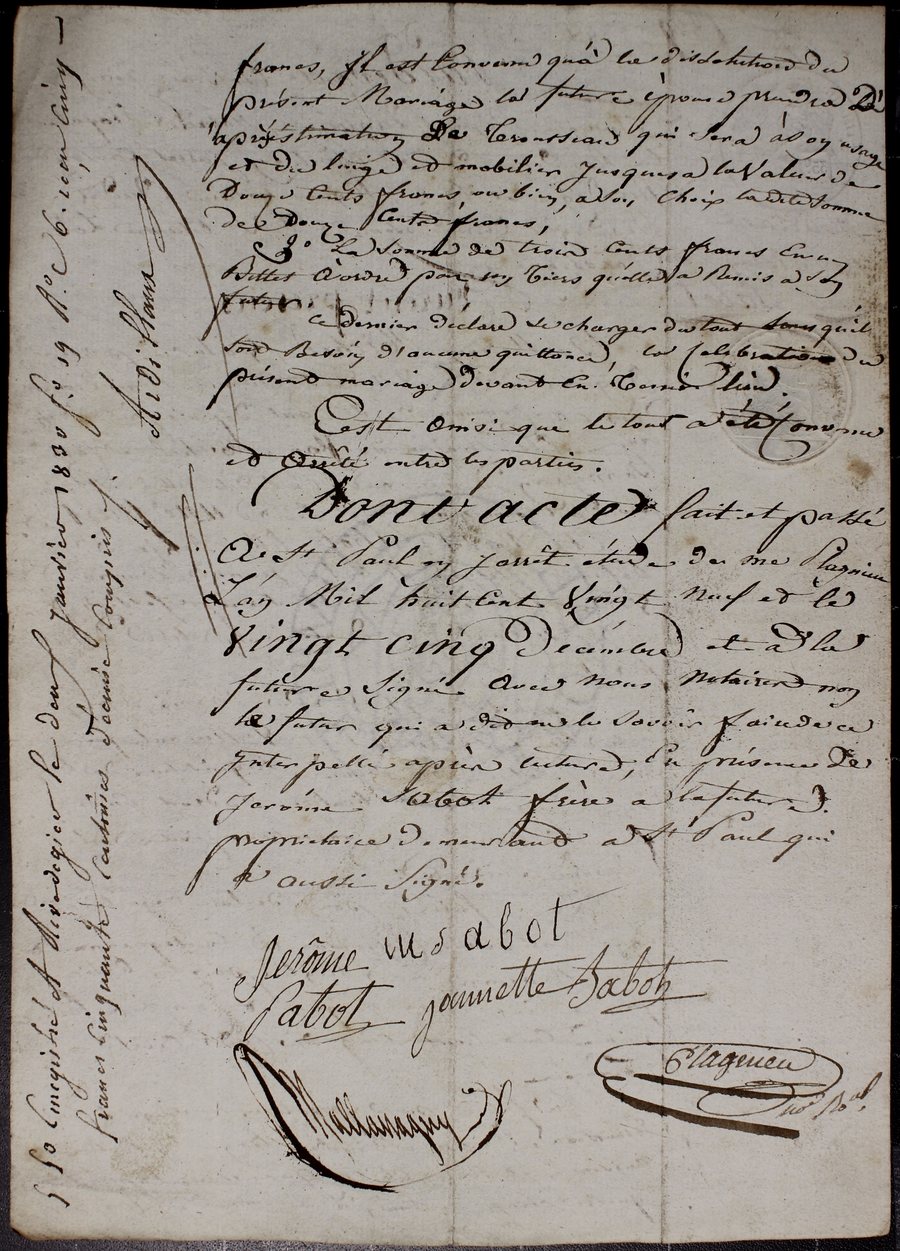 francs, Il est Convenu qu'à la dissolution du
présent Mariage la future épouse prendra
après estimation Le Trousseau qui sera à Son usage
et du linge et mobilier Jusques a la Valeur de
Douze Cents francs ou bien, a Son Choix la dite Somme
de Douze Cents francs,
3.° La Somme de trois Cents francs En un
Billet à ordre par un tiers qu'elle a Remis a son
futur.
ce dernier déclare se charger du tout Sans qu'il
soit Besoin d'aucune quittance, la Celebration du
présent mariage devant En tenir lieu.
C'est ainsi que le tout a été Convenu
et arrêté entre les parties.
Dont acte fait et passé
A St Paul en Jarrêt étude de me Plagnieu
L'an Mil huit Cent Vingt Neuf et le
Vingt cinq Décembre et a la
future Signé avec nous Notaires non
le futur qui a dit ne le Savoir faire de ce
Interpellé après lecture, En présence de
Jerôme Sabot frère a la future
propriétaire demeurant a St Paul qui
a aussi Signé.
Jerôme m Sabot
Sabot jeannette Sabot
Plagnieu
Nore Ral
Enregistré A Rivedegier le deux Janvier 1830 fo 19 Ro C 6. reçu cinq
francs cinquante Centimes dixième Compris